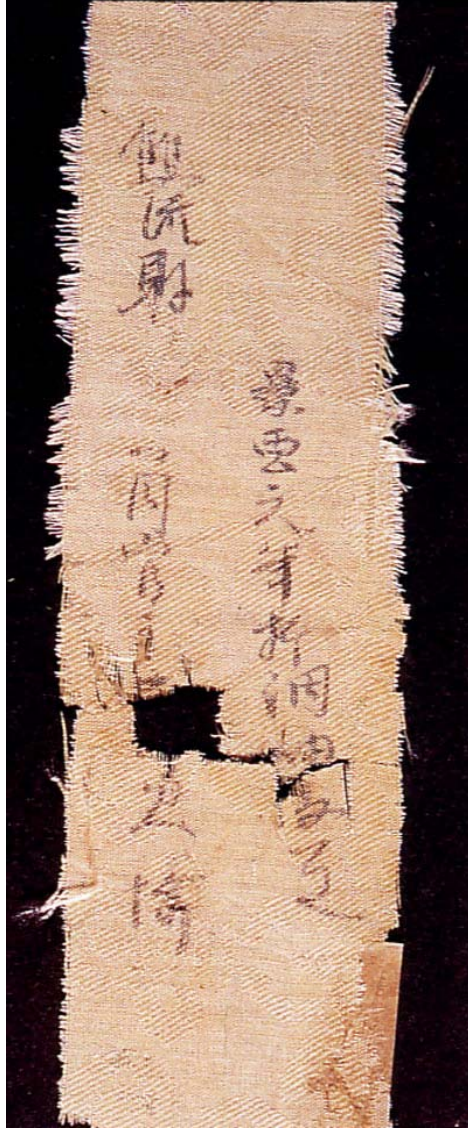 景雲元年折調細綾一疋
雙流縣 八月官主史渝